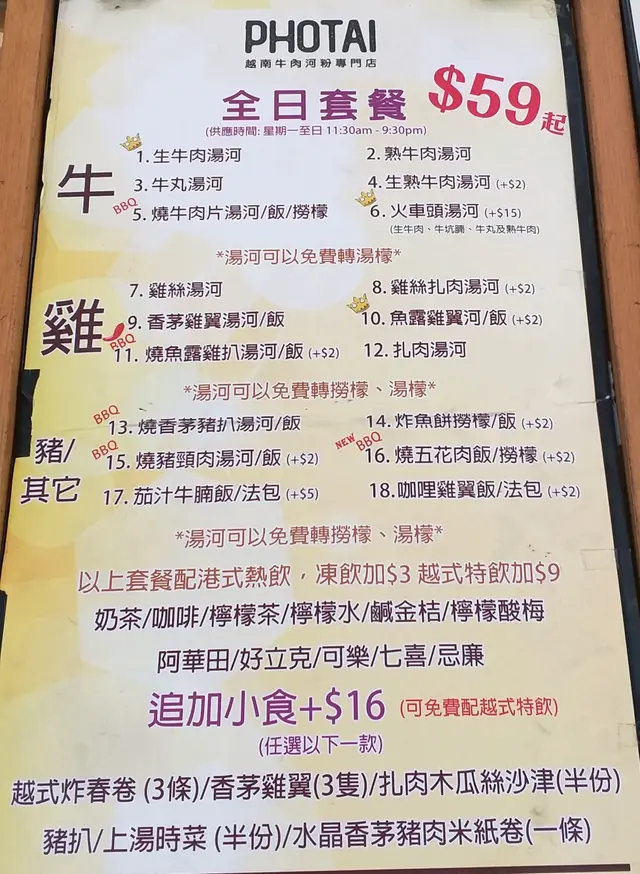 PHOTAI
越南牛肉河粉專門店
全日套餐 $59起
(供應時間: 星期一至日 11:30am - 9:30pm)
牛
1. 生牛肉湯河
2. 熟牛肉湯河
3. 牛丸湯河
4. 生熟牛肉湯河 (+$2)
BBQ 5. 燒牛肉片湯河/飯/撈檬
6. 火車頭湯河 (+$15)
(生牛肉、牛坑腩、牛丸及熟牛肉)
*湯河可以免費轉湯檬*
雞
7. 雞絲湯河
8. 雞絲扎肉湯河 (+$2)
9. 香茅雞翼湯河/飯
10. 魚露雞翼河/飯 (+$2)
BBQ 11. 燒魚露雞扒湯河/飯 (+$2)
12. 扎肉湯河
*湯河可以免費轉撈檬、湯檬*
豬/其它
BBQ 13. 燒香茅豬扒湯河/飯
14. 炸魚餅撈檬/飯 (+$2)
BBQ 15. 燒豬頸肉湯河/飯 (+$2)
NEW BBQ 16. 燒五花肉飯/撈檬 (+$2)
17. 茄汁牛腩飯/法包 (+$5)
18.咖哩雞翼飯/法包 (+$2)
*湯河可以免費轉撈檬、湯檬*
以上套餐配港式熱飲，凍飲加$3 越式特飲加$9
奶茶/咖啡/檸檬茶/檸檬水/鹹金桔/檸檬酸梅
阿華田/好立克/可樂/七喜/忌廉
追加小食+$16 (可免費配越式特飲)
(任選以下一款)
越式炸春卷 (3條)/香茅雞翼(3隻)/扎肉木瓜絲沙津(半份)
豬扒/上湯時菜 (半份)/水晶香茅豬肉米紙卷(一條)